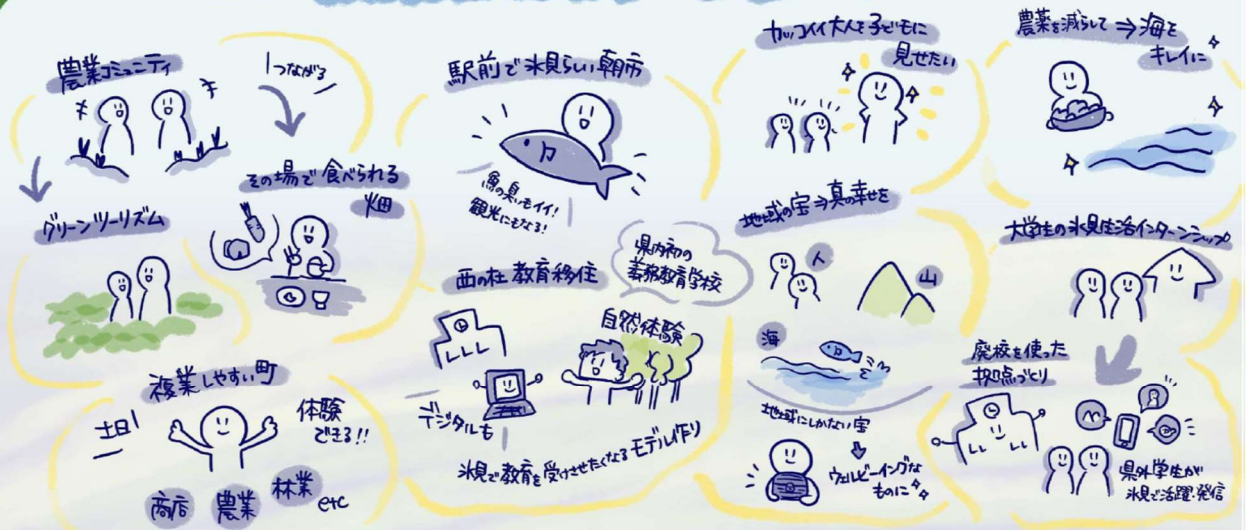 農業コミュニティ
つながる
その場で食べられる
畑
グリーンツーリズム
複業しやすい町
土日
体験
できる!!
商店
農業
林業
etc
駅前で氷見らしい朝市
魚の臭いもイイ!
観光にもなる!
西の杜教育移住
県内初の
義務教育学校
自然体験
デジタルも
氷見で教育を受けさせたくなるモデル作り
カッコイイ大人を子どもに
見せたい
地域の宝⇒真の幸せを
人
山
海
地域にしかない宝
ウェルビーイングな
ものに
農薬を減らして⇒海を
キレイに
大学生の氷見生活インターンシップ
廃校を使った
拠点づくり
県外学生が
氷見で活躍・発信